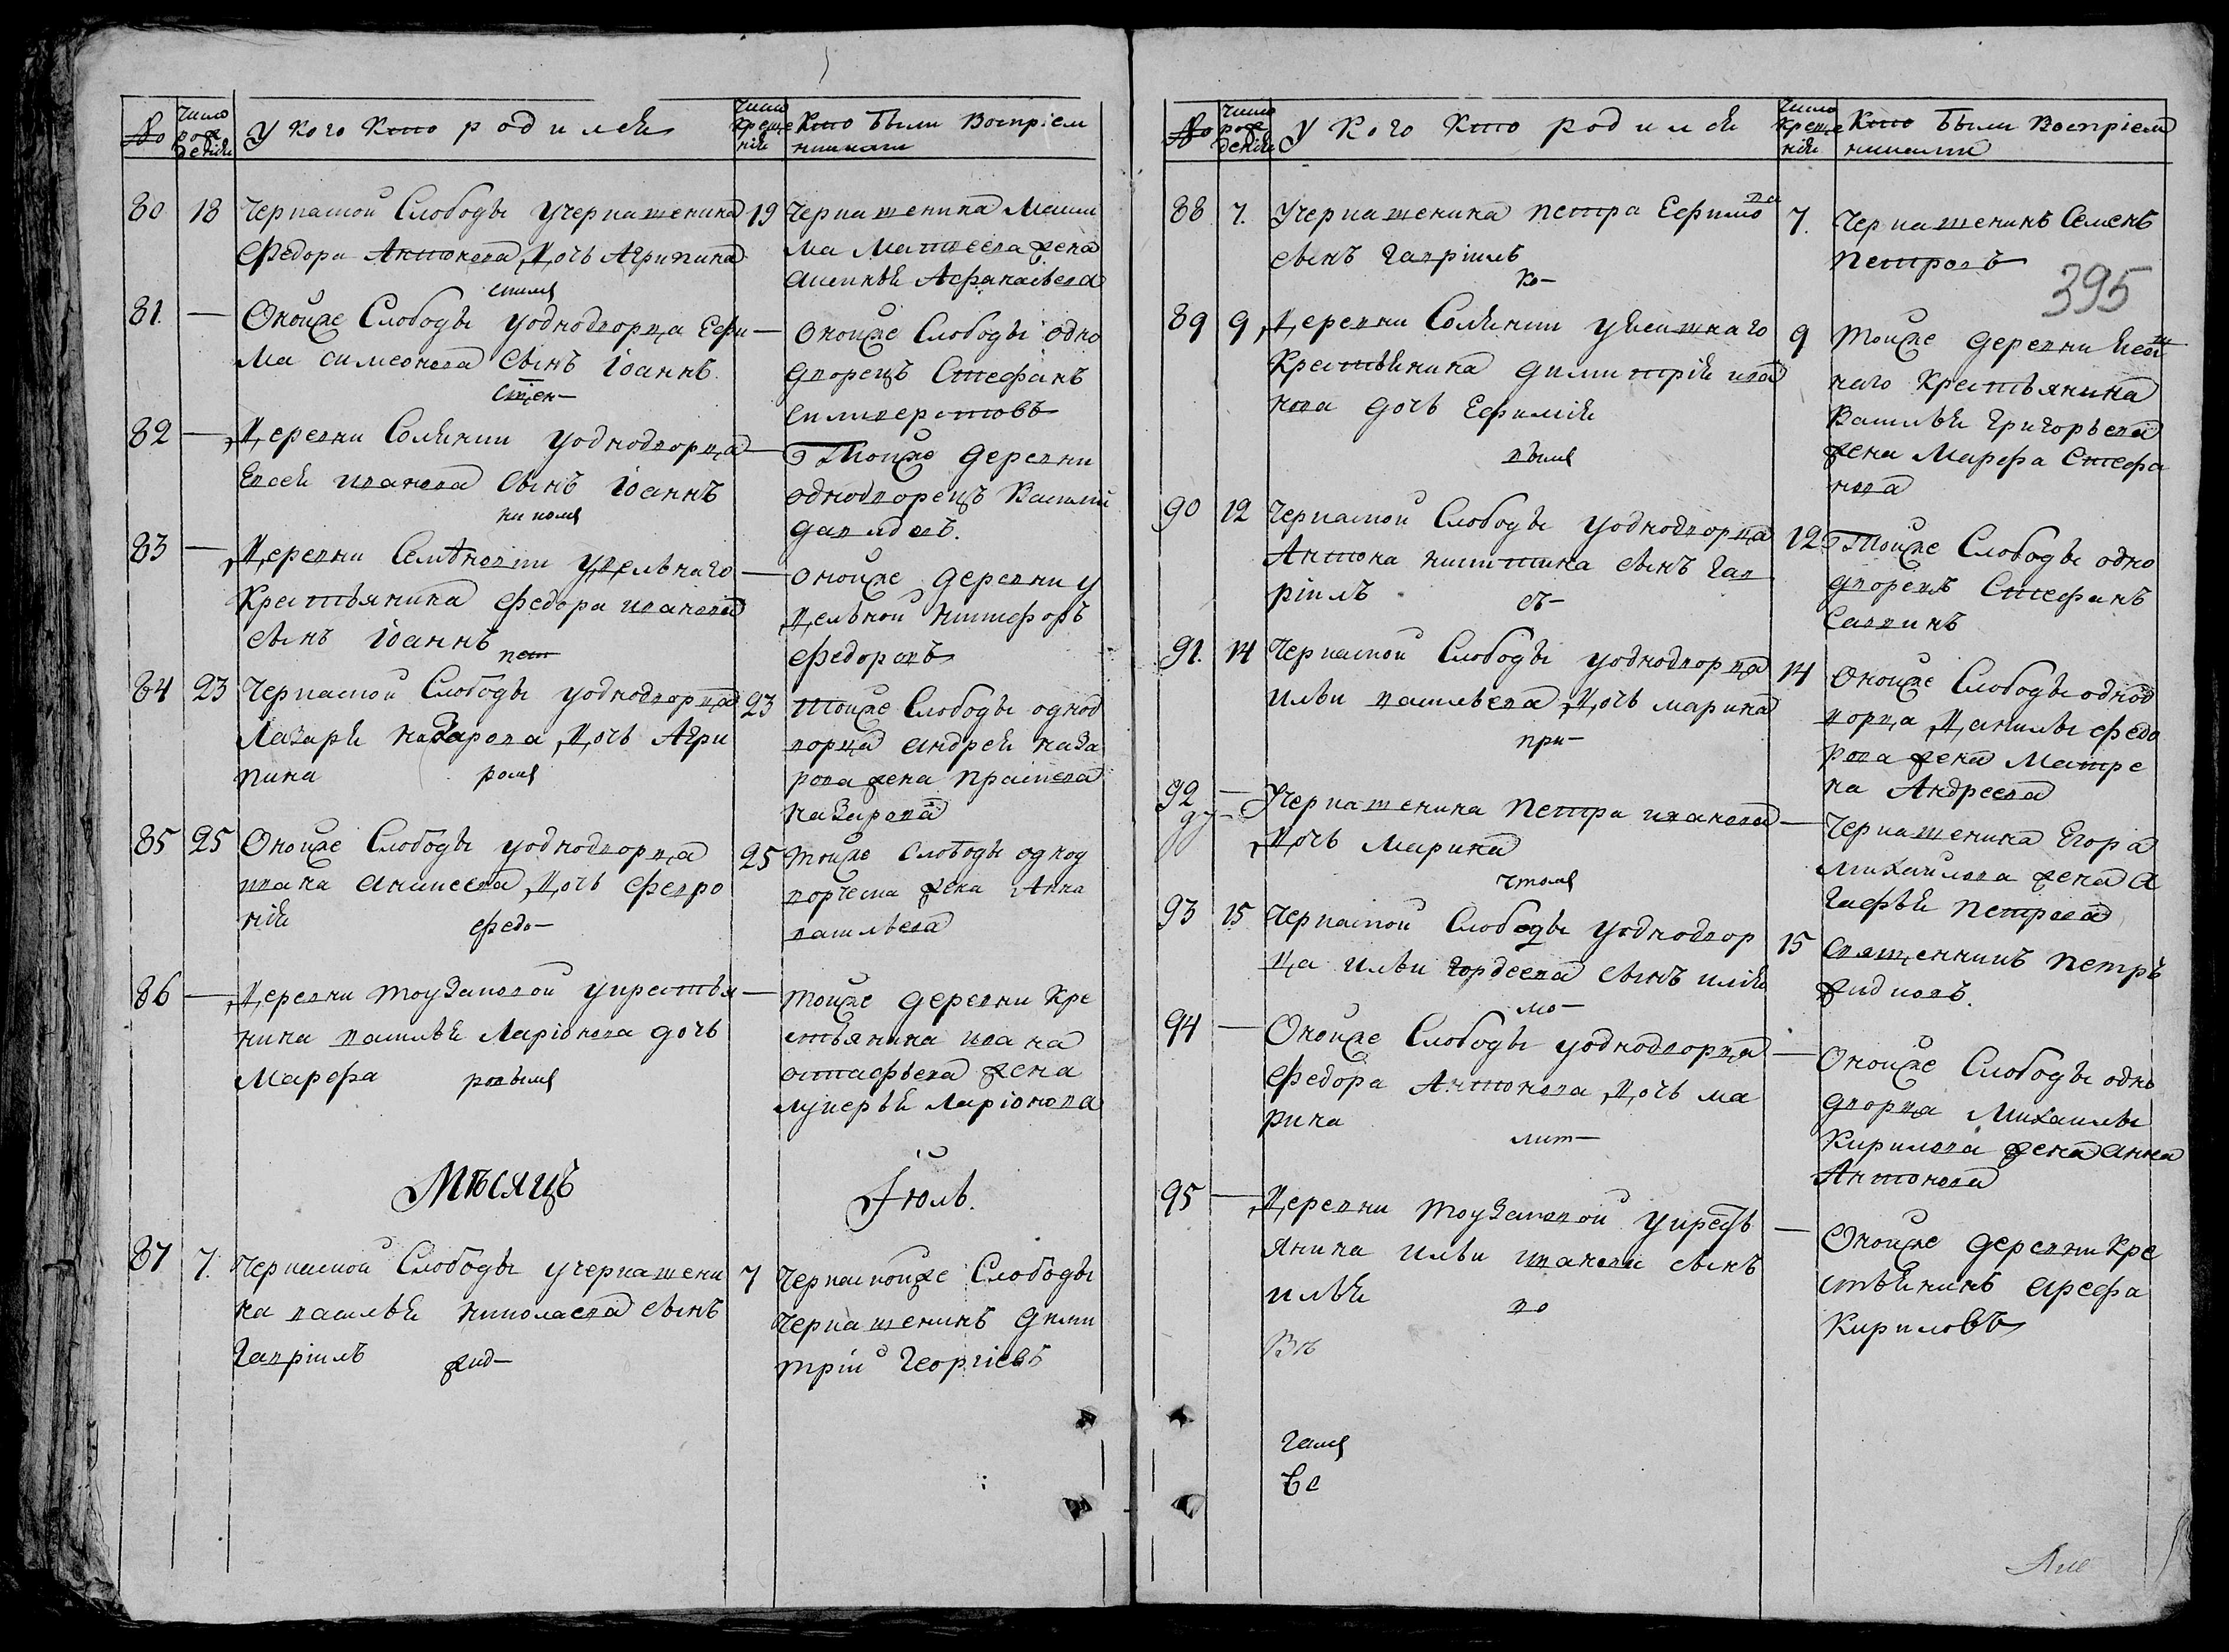 No
Число рождения
У кого кто родился
Число крещения
Кто были восприем
никами
80 18 Черкаской Слободы учеркашенина
Федора Антонова дочь Агрипина
19 Черкашенина Макси
ма Матвеева жена
Аксинья Афанасьева
81. — Оной же Слободы уоднодворца Ефи
ма Симеонова сынъ Iоаннъ
— Оной же Слободы одно
дворецъ Стефанъ
Силиверстовъ
священ—
82 — Деревни уоднодворца
Евсея Иванова сынъ Iоаннъ
— Той же деревни
однодворецъ Василий
Давидовъ.
83 — Деревни удельнаго
Крестьянина Федора Иванова
сынъ Iоаннъ
— Оной же деревни у
дельной Никифоръ
Федоровъ
пет
84 23 Черкаской Слободы уоднодворца
Лазаря Назарова дочь Агри
пина
23 Той же Слободы однод
ворца Андрея Наза
рова жена
Назарова
85 25 Оной же Слободы уоднодворца
Ивана дочь Февро
нiя
25 Той же Слободы однод
жена Анна
Васильева
федо—
86 — Деревни Тоузаковой укрестья
нина Василья Ларiонова дочь
Марфа
— Той же деревни Кре
стьянина Ивана
Остафьева жена
Лукерья Ларiонова
Мѣсяцъ Iюль.
87 7. Черкаской Слободы учеркашени
на Василья Николаева сынъ
Гаврiилъ
7 Черкаской же Слободы
Черкашенинъ Дими
трiй Георгiевъ
жид—
No
Число рождения
У кого кто родился
Число крещения
Кто были восприем
никами
395
88 7. Учеркашенина Петра Ефимо
ва
сынъ Гаврiилъ
7. Черкашенинъ Семенъ
Петровъ
ко—
89 9 Деревни
Крестьянина Димитрiя Ива
нова дочь Ефимiя
9 Той же деревни
наго Крестьянина
Василья Григорьева
жена Марфа Стефа
нова
90 12 Черкаской Слободы уоднодворца
Антона Никитина сынъ Гав
рiилъ
12. Той же Слободы одно
дворецъ Стефанъ
Саввинъ
съ—
91. 14 Черкаской Слободы уоднодворца
Ильи Васильева дочь Марина
14 Оной же Слободы однод
ворца Данилы Федо
рова жена Матре
на Андреева
при—
92 — Учеркашенина Петра Иванова
дочь Марина
— Черкашенина Егора
Михайлова жена А
гафья Петрова
93 15. Черкаской Слободы уоднодвор
ца Ильи Гордеева сынъ Илiя
15 Священникъ Петръ
Жидковъ.
мо—
94 — Оной же Слободы уоднодворца
Федора Антонова дочь Ма
рина
— Оной же Слободы одно
дворца Михаилы
Кирилова жена Анна
Антонова
лит—
95 — Деревни Тоузаковой укресть
янина Ильи Иванова сынъ
Илья
— Оной же деревни Кре
стьянинъ Арефа
Кириловъ
во